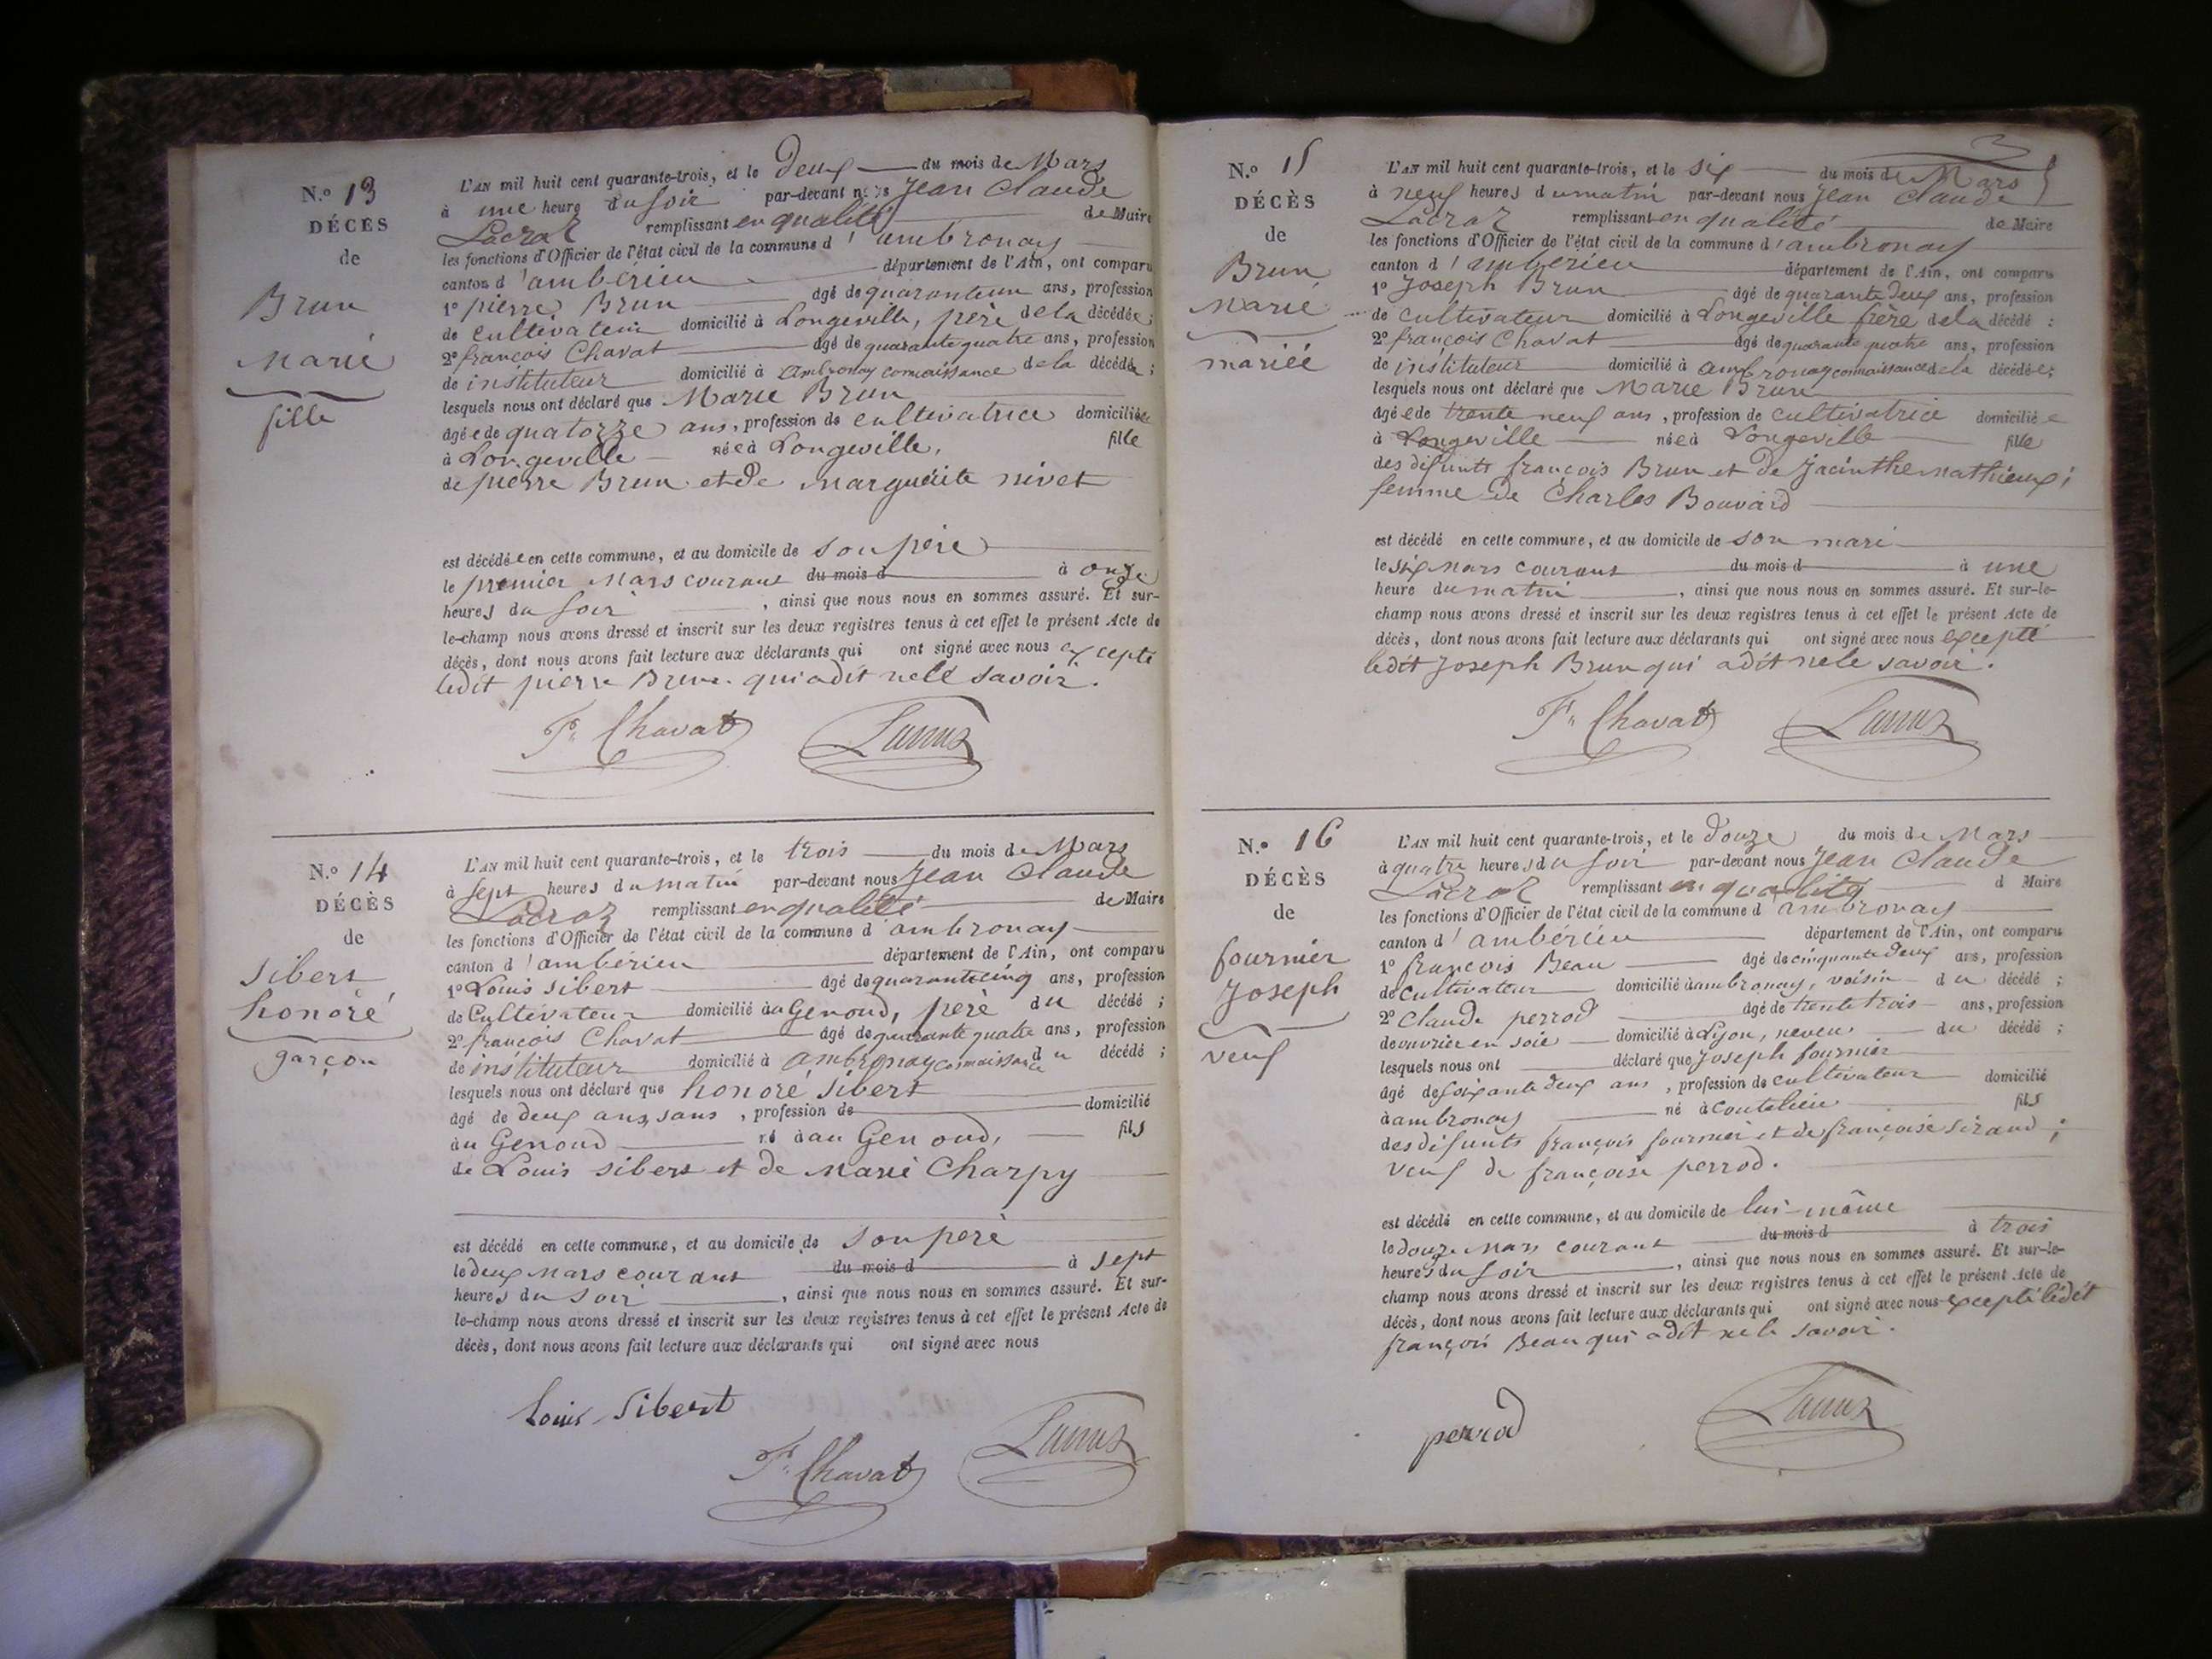 N.º 13
DÉCÈS
de
Brun
Marie
fille
L'AN mil huit cent quarante-trois, et le Deux du mois de Mars
à une heure du soir par-devant nous Jean Claude
Lacroz remplissant en qualité de Maire
les fonctions d'Officier de l'état civil de la commune d'ambronay
canton d'ambérieu département de l'Ain, ont comparu
1º pierre Brun âgé de quaranteun ans, profession
de cultivateur domicilié à Longeville, père de la décédée ;
2º françois Chavat âgé de quarante quatre ans, profession
de instituteur domicilié à Ambronay connaissance de la décédée ;
lesquels nous ont déclaré que Marie Brun
âgée de quatorze ans, profession de cultivatrice domiciliée
à Longeville née à Longeville, fille
de pierre Brun et de Marguerite nivet
est décédée en cette commune, et au domicile de son père
le premier Mars courant du mois d à onze
heures du soir , ainsi que nous nous en sommes assuré. Et sur-
le-champ nous avons dressé et inscrit sur les deux registres tenus à cet effet le présent Acte de
décès, dont nous avons fait lecture aux déclarants qui ont signé avec nous excepté
ledit pierre Brun qui a dit ne le savoir.
F. Chavat
N.º 14
DÉCÈS
de
Sibert
honoré
garçon
L'AN mil huit cent quarante-trois, et le trois du mois de Mars
à sept heures du matin par-devant nous Jean Claude
Lacroz remplissant en qualité de Maire
les fonctions d'Officier de l'état civil de la commune d'ambronay
canton d'ambérieu département de l'Ain, ont comparu
1º Louis Sibert âgé de quarantecinq ans, profession
de Cultivateur domicilié au Genoud, père du décédé ;
2º françois Chavat âgé de quarante quatre ans, profession
de instituteur domicilié à ambronay connaissance du décédé ;
lesquels nous ont déclaré que honoré Sibert
âgé de deux ans, sans , profession de domicilié
au Genoud né à au Genoud, fils
de Louis Sibert et de Marie Charpy
est décédé en cette commune, et au domicile de son père
le deux Mars courant du mois d à sept
heures du soir , ainsi que nous nous en sommes assuré. Et sur-
le-champ nous avons dressé et inscrit sur les deux registres tenus à cet effet le présent Acte de
décès, dont nous avons fait lecture aux déclarants qui ont signé avec nous
Louis Sibert
F. Chavat
N.º 15
DÉCÈS
de
Brun
Marie
mariée
L'AN mil huit cent quarante-trois, et le six du mois de Mars
à neuf heures du matin par-devant nous Jean Claude
Lacroz remplissant en qualité de Maire
les fonctions d'Officier de l'état civil de la commune d'ambronay
canton d'ambérieu département de l'Ain, ont comparu
1º Joseph Brun âgé de quarante deux ans, profession
de cultivateur domicilié à Longeville frère de la décédé :
2º françois Chavat âgé de quarante quatre ans, profession
de instituteur domicilié à ambronay connaissance de la décédée ;
lesquels nous ont déclaré que Marie Brun
âgée de trente neuf ans , profession de cultivatrice domiciliée
à Longeville née à Longeville fille
des défunts françois Brun et de Jacinthe Mathieux ;
femme de Charles Bouvard
est décédé en cette commune, et au domicile de son mari
le six Mars courant du mois d à une
heure du matin , ainsi que nous nous en sommes assuré. Et sur-le-
champ nous avons dressé et inscrit sur les deux registres tenus à cet effet le présent Acte de
décès, dont nous avons fait lecture aux déclarants qui ont signé avec nous excepté
ledit Joseph Brun qui a dit ne le savoir.
F. Chavat
N.º 16
DÉCÈS
de
fournier
Joseph
veuf
L'AN mil huit cent quarante-trois, et le douze du mois de Mars
à quatre heures du soir par-devant nous Jean Claude
Lacroz remplissant en qualité d Maire
les fonctions d'Officier de l'état civil de la commune d'ambronay
canton d'ambérieu département de l'Ain, ont comparu
1º françois Beau âgé de cinquante deux ans, profession
de cultivateur domicilié à ambronay, voisin du décédé ;
2º Claude perrod âgé de trente trois ans, profession
de ouvrier en soie domicilié à Lyon, neveu du décédé ;
lesquels nous ont déclaré que Joseph fournier
âgé de soixante deux ans , profession de cultivateur domicilié
à ambronay né à coutelieu fils
des défunts françois fournier et de françoise Sirand ;
veuf de françoise perrod.
est décédé en cette commune, et au domicile de lui-même
le douze Mars courant du mois d à trois
heures du soir , ainsi que nous nous en sommes assuré. Et sur-le-
champ nous avons dressé et inscrit sur les deux registres tenus à cet effet le présent Acte de
décès, dont nous avons fait lecture aux déclarants qui ont signé avec nous excepté ledit
françois Beau qui a dit ne le savoir.
perrod